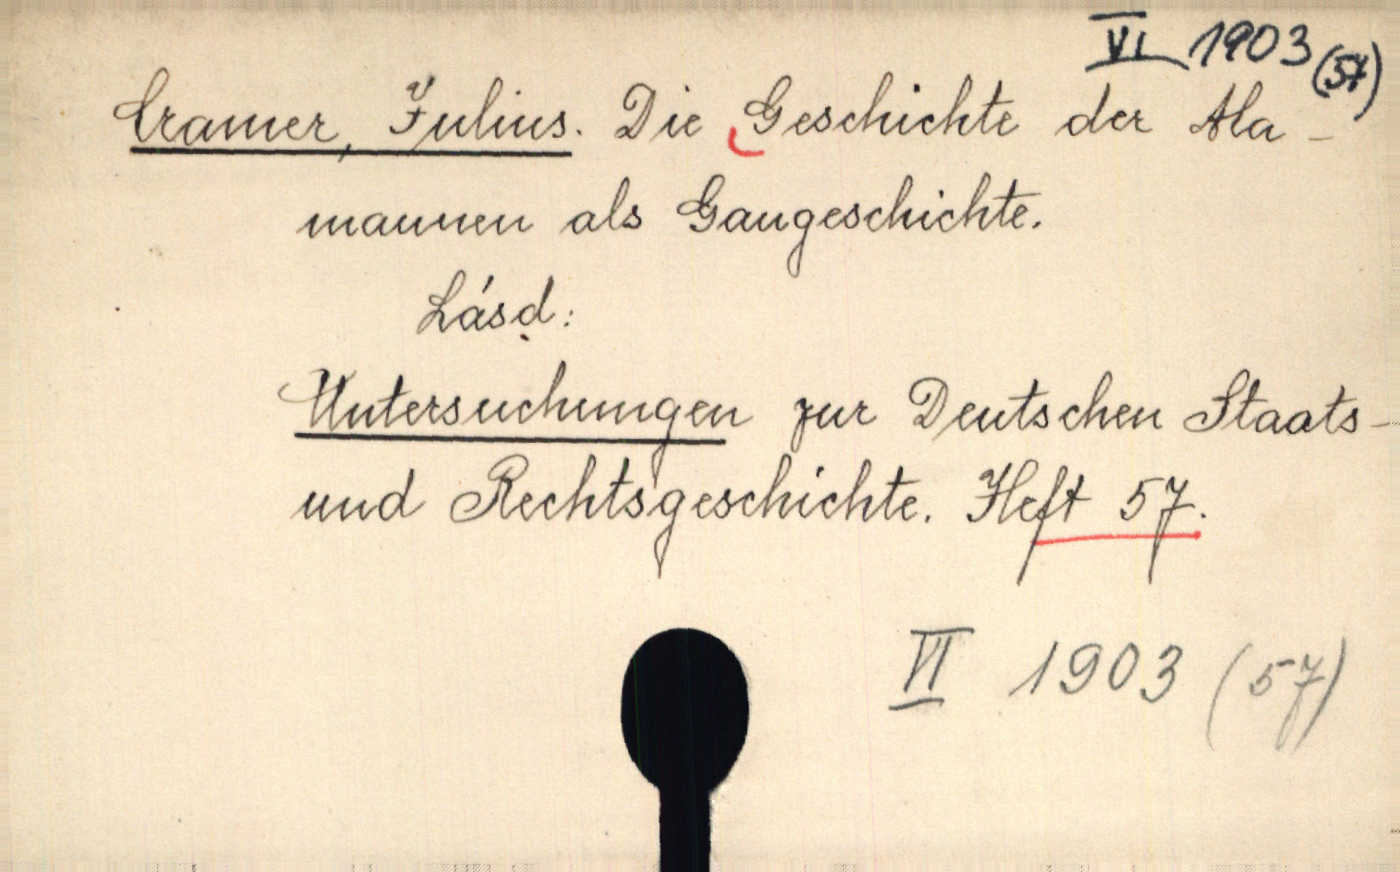 VI 1903 (57)
Cramer, Julius. Die Geschichte der Ala-
mannen als Gaugeschichte.
Lásd:
Untersuchungen zur Deutschen Staats-
und Rechtsgeschichte. Heft 57.
VI 1903 (57)